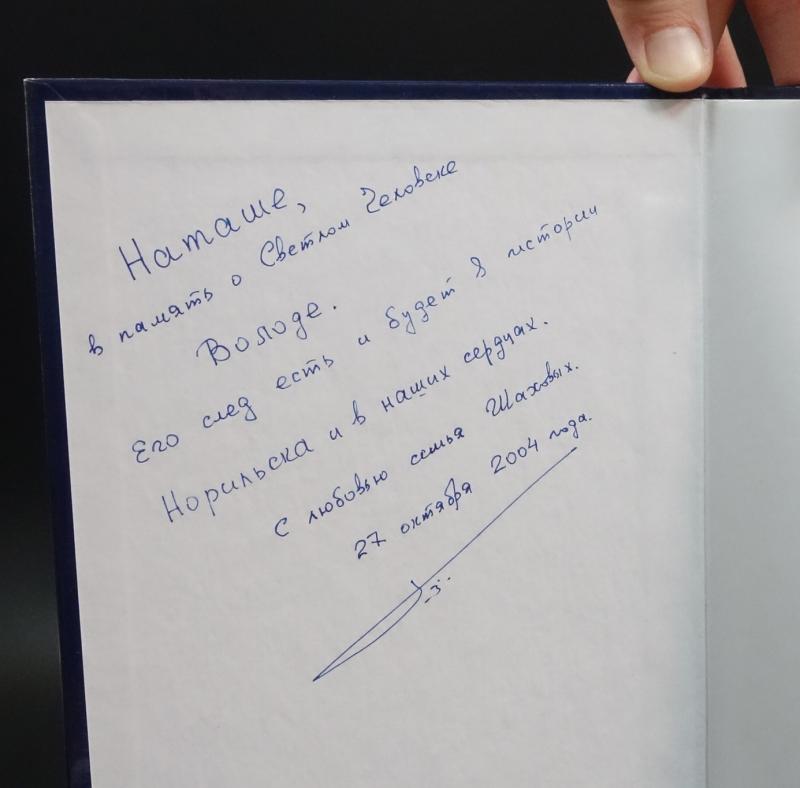 Наташе,
в память о Светлом Человеке
Володе.
Его след есть и будет в истории
Норильска и в наших сердцах.
С любовью семья Шаховых.
27 октября 2004 года.